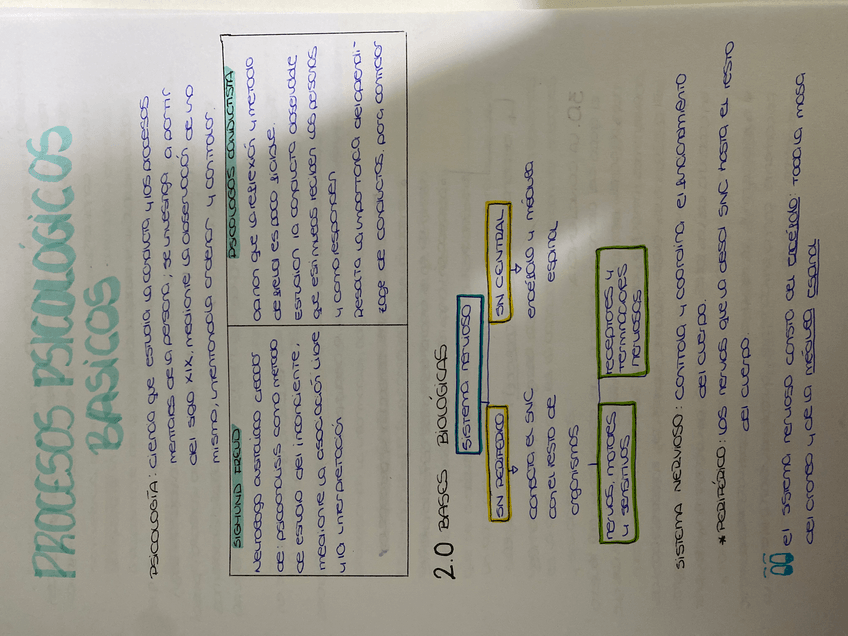 PROCESOS PSICOLÓGICOS
BASICOS
PSICOLOGÍA: ciencia que estudia la conducta y los procesos
mentales de la persona, se investiga a partir
del siglo XIX, mediante la observación de uno
mismo, intentando ordenar y controlar.
SIGMUND FREUD
Neurologo austriaco creador
de: psicoanalisis como método
de estudio del inconciente,
mediante la asociación libre
y la interpretación
PSICOLOGOS CONDUCTISTA
opinan que la reflexión y metodo
de freud es poco fiable.
Estudian la conducta observable
que estimulos reciben las personas
y como responden
Resalta la importancia del aprendi-
zage de conductas, para controlar
2.0 BASES BIOLÓGICAS
SISTEMA NERVIOSO
SN PERIFERICO
SN CENTRAL
conecta el SNC
con el resto de
organismos
encéfalo y médula
espinal
nervios, motores
y sensitivos
receptores y
terminaciones
nerviosas
SISTEMA NERVIOSO: Controla y coordina el funcionamiento
del cuerpo.
*PERIFÉRICO: los nervios que va desde SNC hasta el resto
del cuerpo.
el sistema nervioso consta del encéfalo: toda la masa
del craneo y de la médula espinal